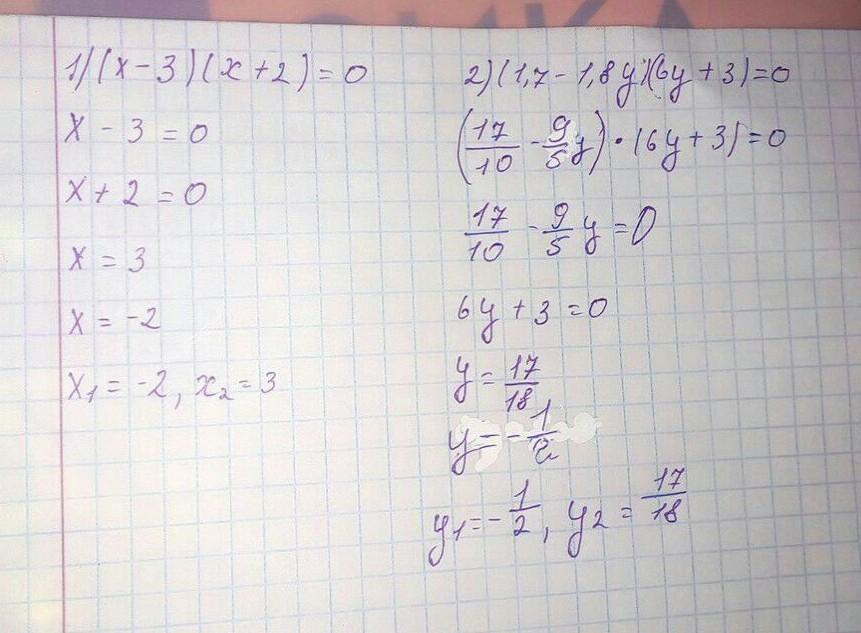 1) (x - 3)(x + 2) = 0
x - 3 = 0
x + 2 = 0
x = 3
x = -2
x₁ = -2, x₂ = 3
2) (1,7 - 1,8y)(6y + 3) = 0
(17/10 - 9/5 y) · (6y + 3) = 0
17/10 - 9/5 y = 0
6y + 3 = 0
y = 17/18
y = - 1/2
y₁ = - 1/2, y₂ = 17/18